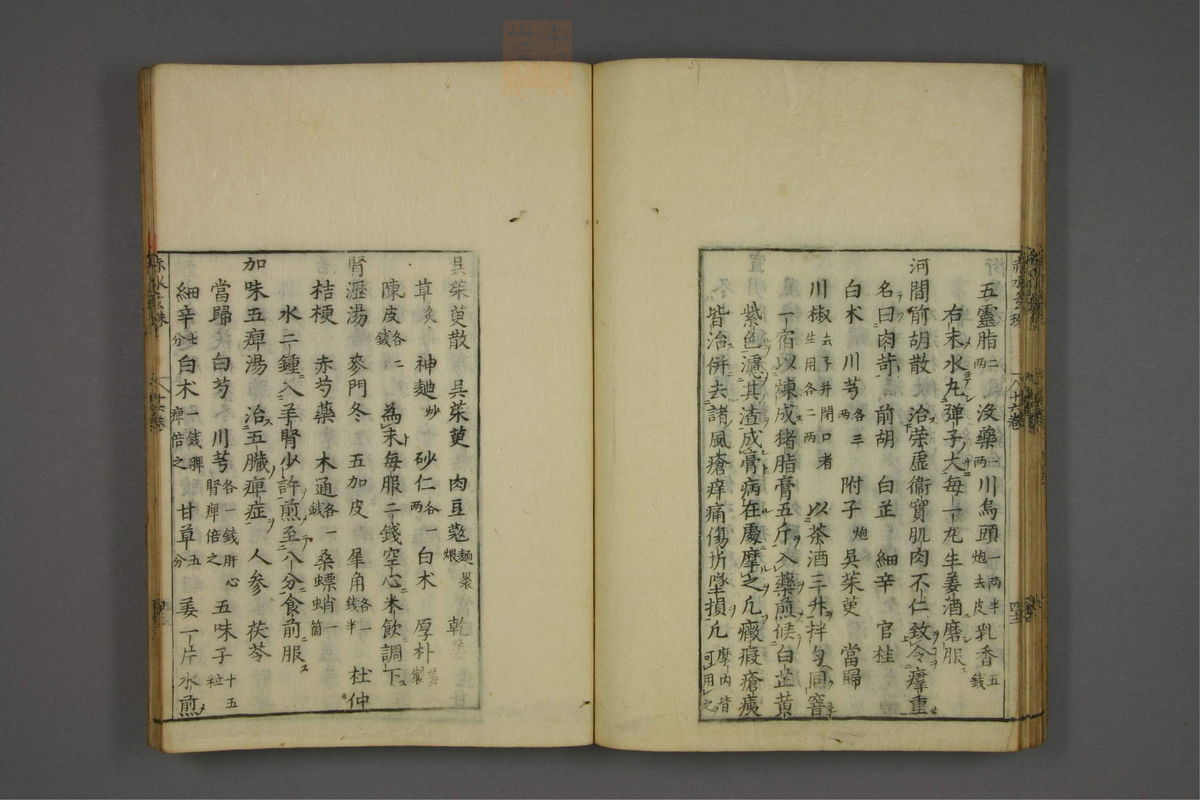 五靈脂二两沒藥一两川烏頭一两半炮去皮乳香五錢
右末水丸弹子大每一丸生姜酒磨服
河間前胡散 治荣虚衞實肌肉不仁致令𤸷重
名曰肉苛 前胡 白芷 細辛 官桂
白术 川芎各三两 附子炮 吳茱萸 當歸
川椒去子并閉口者生用各二两 以茶酒三升拌匀同窨
一宿以煉成猪脂膏五斤入藥煎候白芷黄
紫色濾其渣成膏病在處摩之凢癥瘕瘡痍
皆治併去諸風瘡痒痛傷折墜損凢摩内皆可用之
吳茱萸散 吳茱萸 肉豆蔲麵裹煨 乾
草炙 神麯炒 砂仁各一两 白术 厚朴姜製
陳皮各二錢 為末每服二錢空心米飲調下
腎瀝湯 麥門冬 五加皮 犀角各一錢半 杜仲
桔梗 赤芍藥 木通各一錢 桑螵蛸一箇
水二鍾入羊腎少許煎至八分食前服
加味五痺湯 治五臓痺症 人參 茯苓
當歸 白芍 川芎各一錢肝心腎痺倍之 五味子十五粒
細辛七分白术一錢脾痺倍之 甘草五分 姜一片水煎